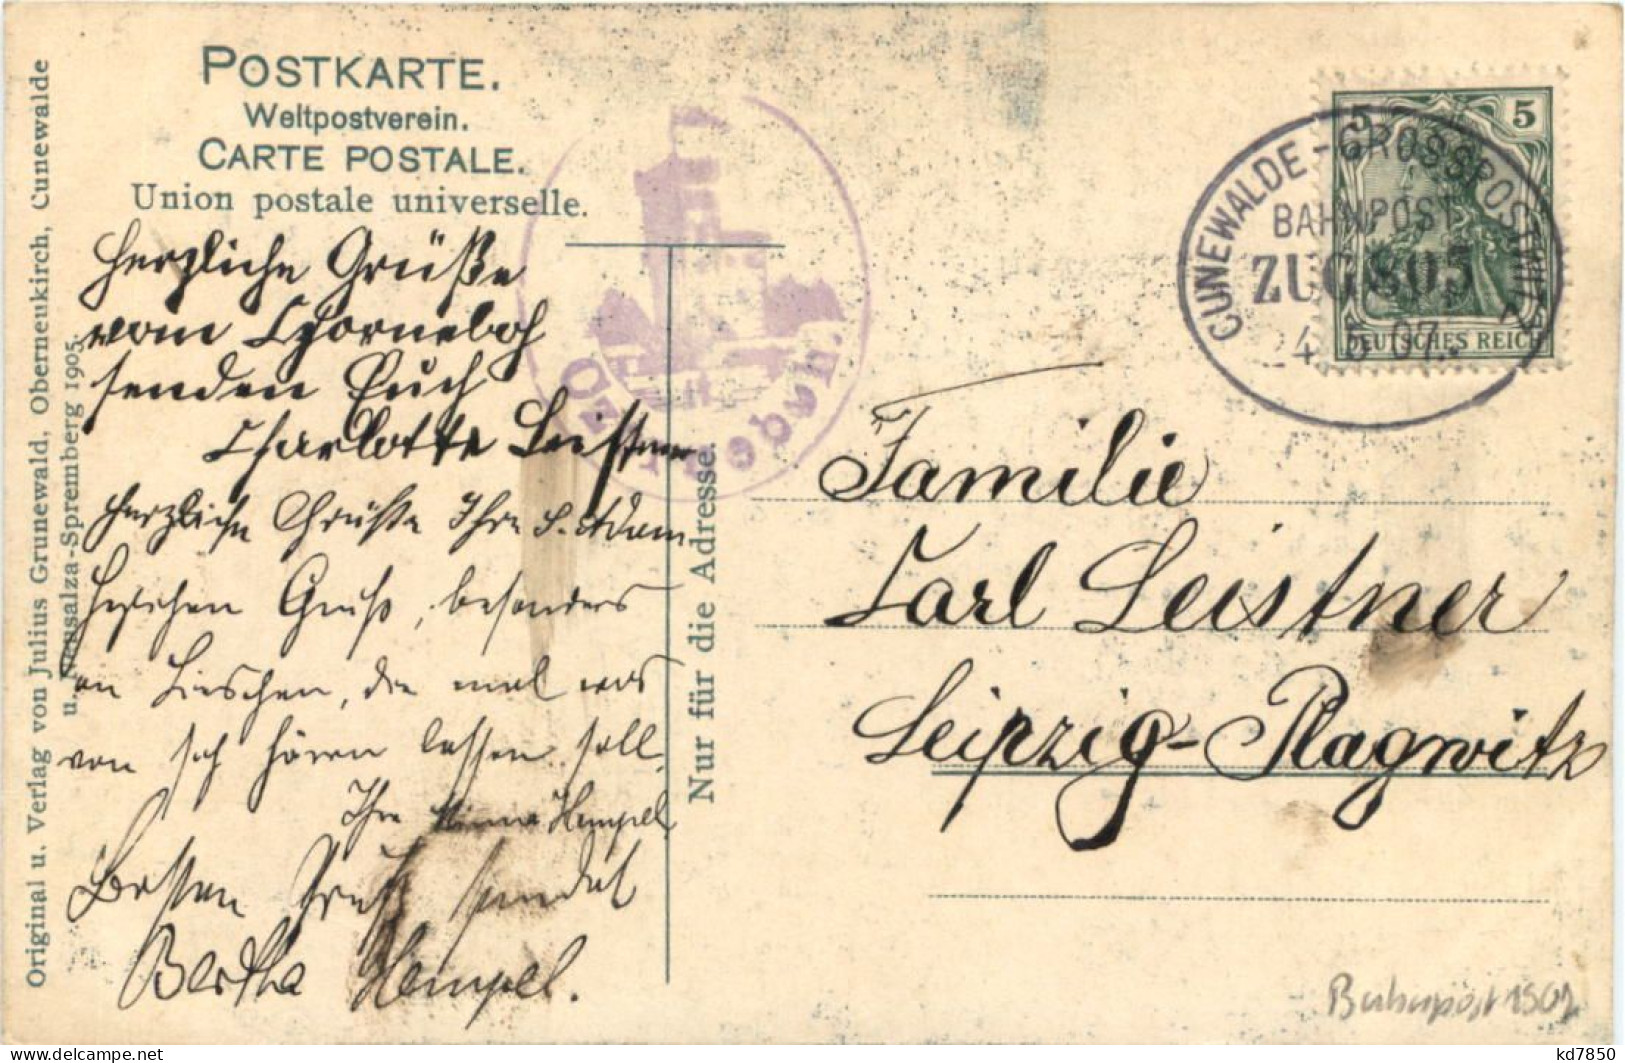 POSTKARTE.
Weltpostverein.
CARTE POSTALE.
Union postale universelle.
Original u. Verlag von Julius Grunewald, Oberneukirch, Cunewalde
u. Neusalza-Spremberg 1905.
Herzliche Grüße
vom Czorneboh
senden Euch
Charlotte Leistner
Herzliche Grüße Ihre
Herzlichen Gruß, besonders
an Lieschen, die mal was
von sich hören lassen soll.
Ihre Minna Hempel
Besten Gruß sendet
Bertha Hempel.
Nur für die Adresse.
CUNEWALDE - GROSSPOSTWITZ
BAHNPOST
ZUG 805
4 5 07
5 5
DEUTSCHES REICH
Familie
Carl Leistner
Leipzig-Plagwitz
Bahnpost 1907
kd7850
delcampe.net